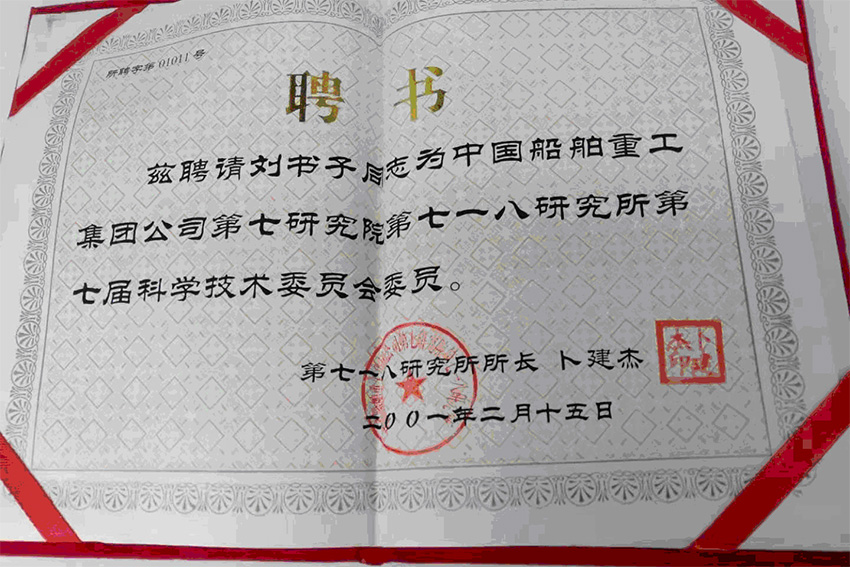 所聘字第01011号
聘书
兹聘请刘书子同志为中国船舶重工
集团公司第七研究院第七一八研究所第
七届科学技术委员会委员。
第七一八研究所所长 卜建杰
二〇〇一年二月十五日
卜建
杰印